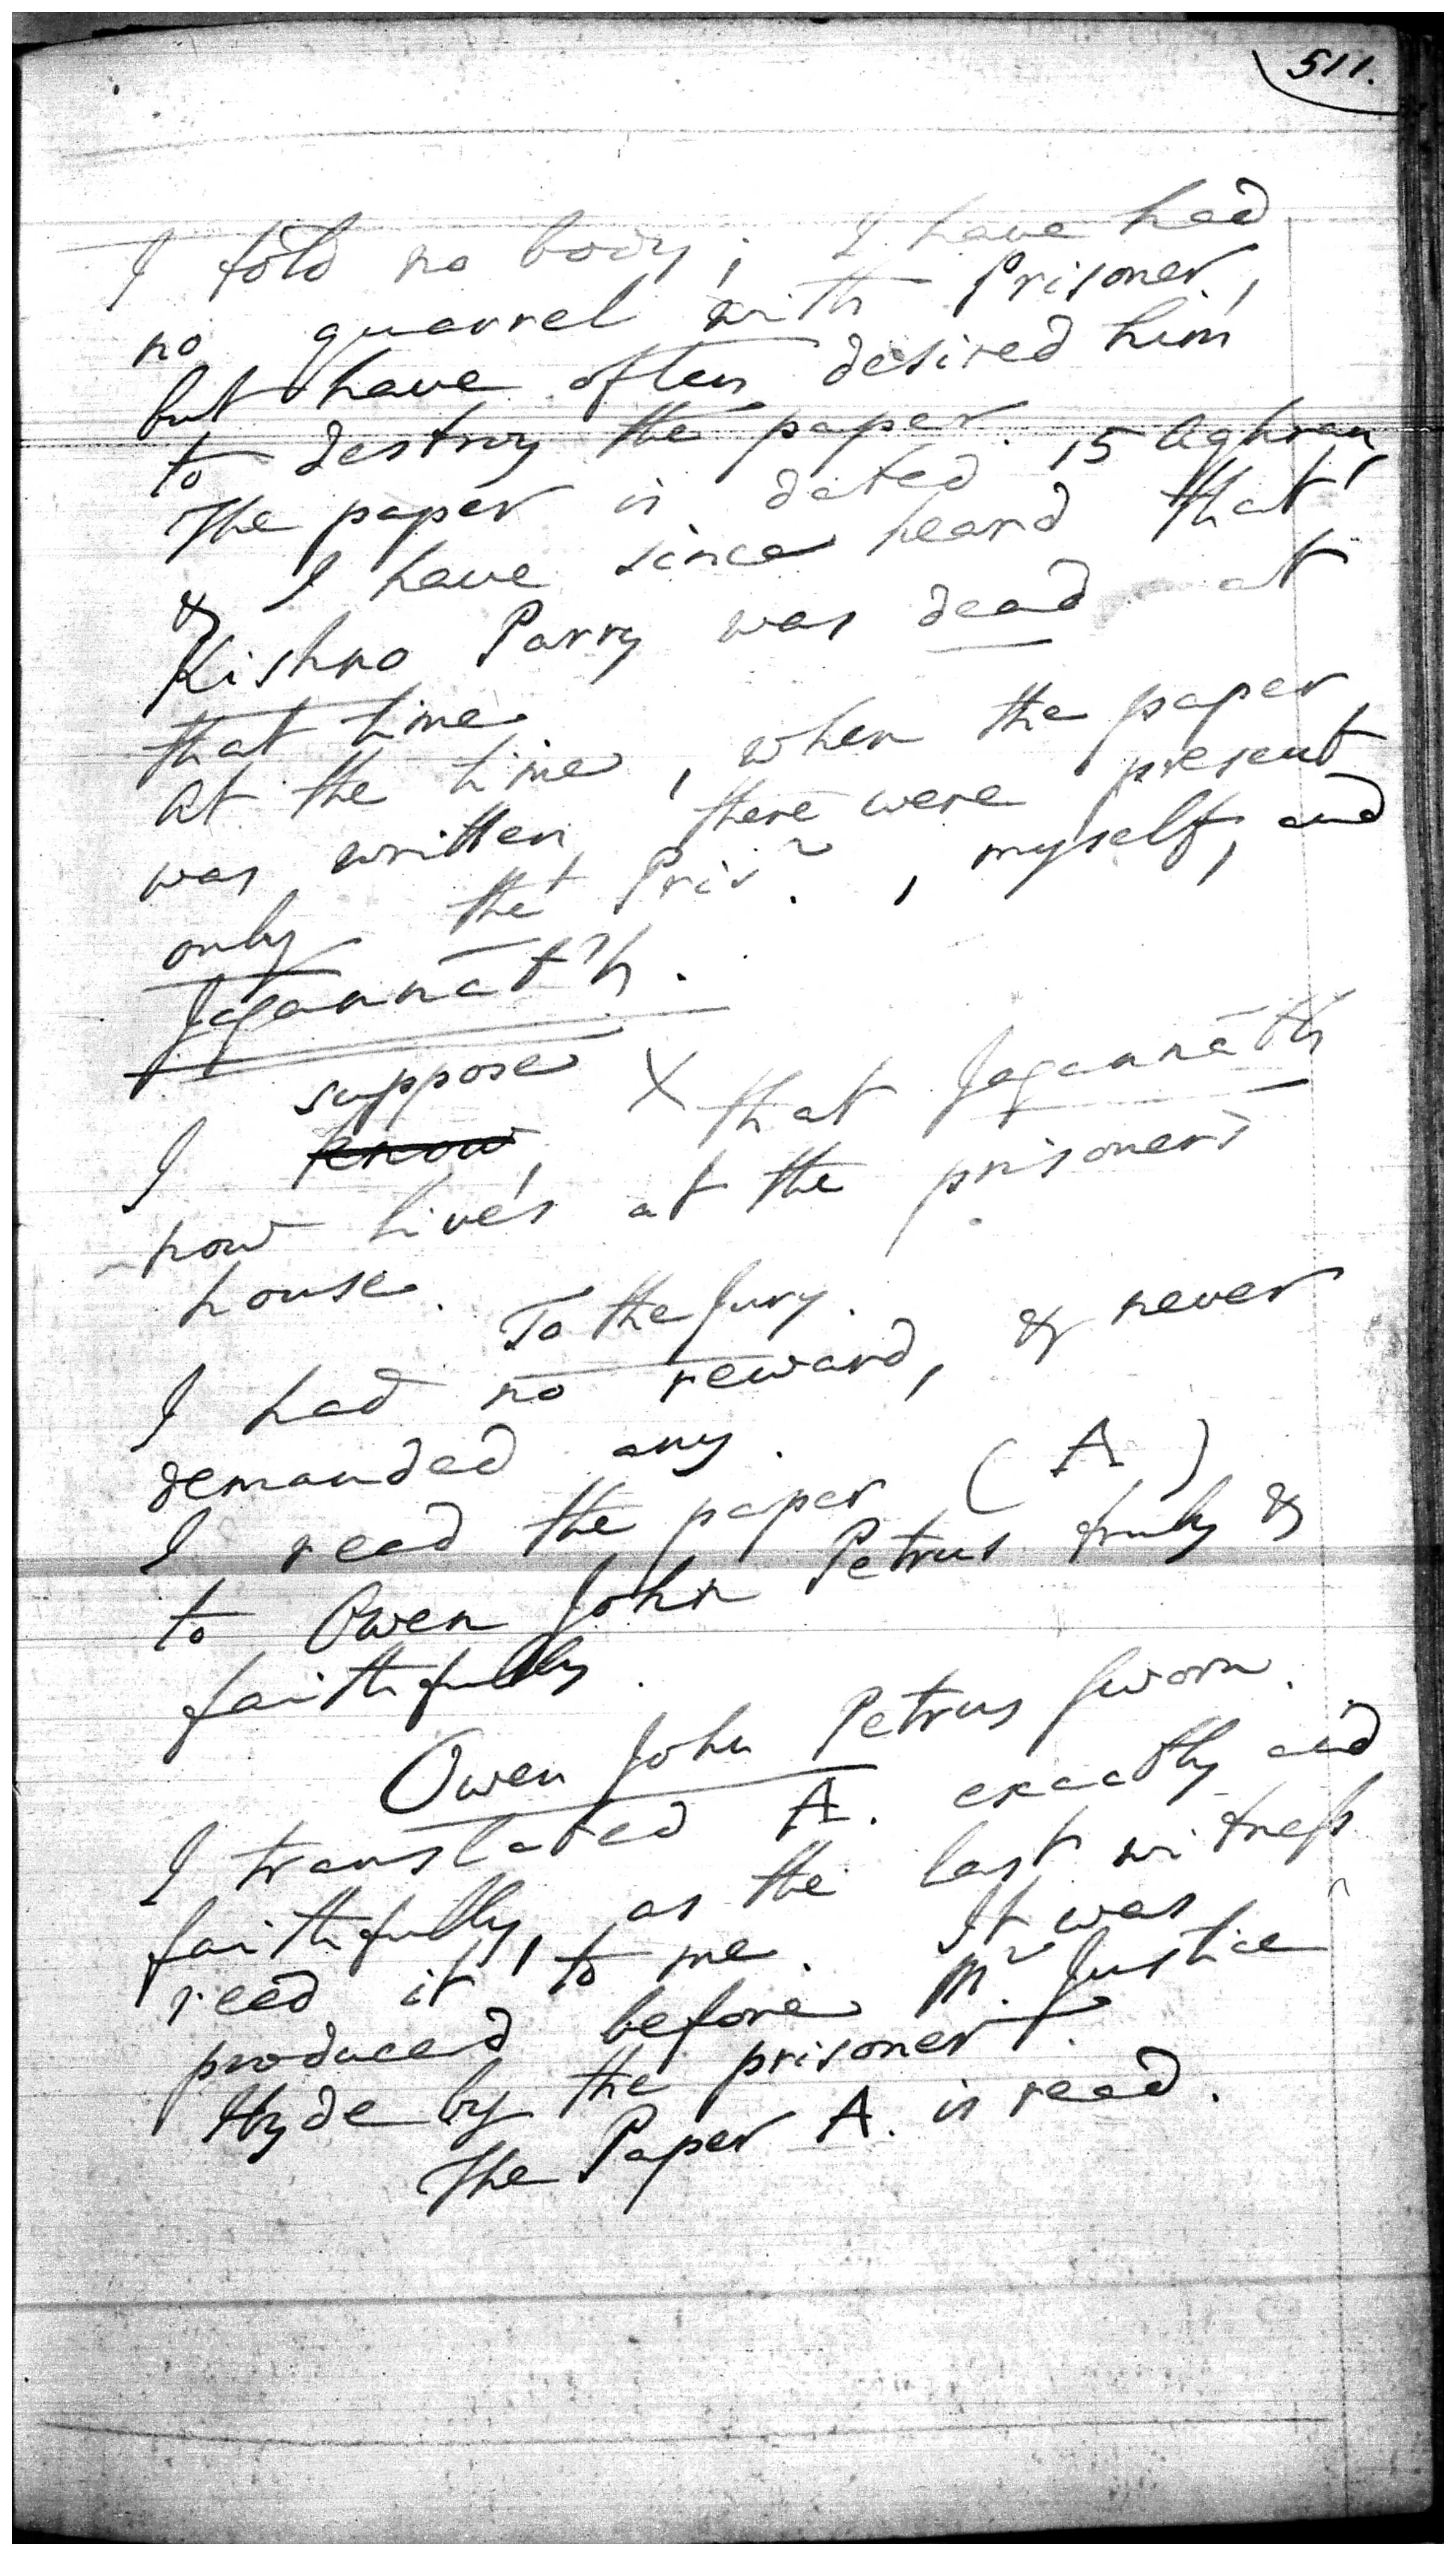 511.
I told no body; I have had
no quarrel with Prisoner,
but have often desired him
to destroy the paper.
The paper is dated 15 Aghran,
& I have since heard that
Kishno Parry was dead at
that time.
At the time, when the paper
was written, there were present
only the Prisr., myself, and
Jagannāt'h.
suppose X
I know, that Jagannāth
now lives at the prisoner's
house.
To the Jury.
I had no reward, & never
demanded any.
I read the paper (A)
to Owen John Petrus truly &
faithfully.
Owen John Petrus sworn.
I translated A. exactly and
faithfully, as the last witness
read it to me. It was
produced before Mr. Justice
Hyde by the prisoner.
The Paper A. is read.